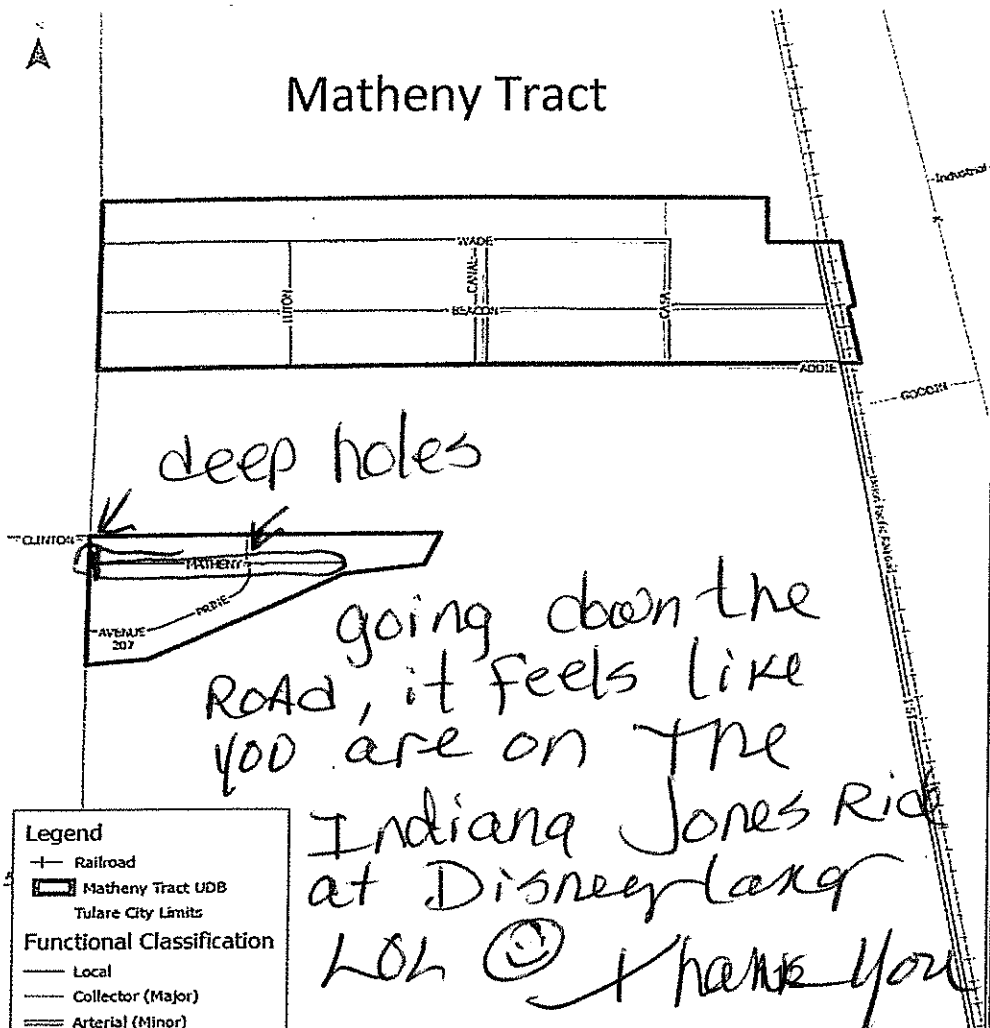 Matheny Tract
Industrial
WADE
CANAL
LUTON
BEACON
CASA
ADDIE
GOODIN
deep holes
Union Pacific Railroad
CLINTON
MATHENY
PRINE
AVENUE
207
going down the
ROAd, it feels like
YOU are on the
Indiana Jones Rid
at Disneyland
LOL Thank You
Legend
Railroad
Matheny Tract UDB
Tulare City Limits
Functional Classification
Local
Collector (Major)
Arterial (Minor)